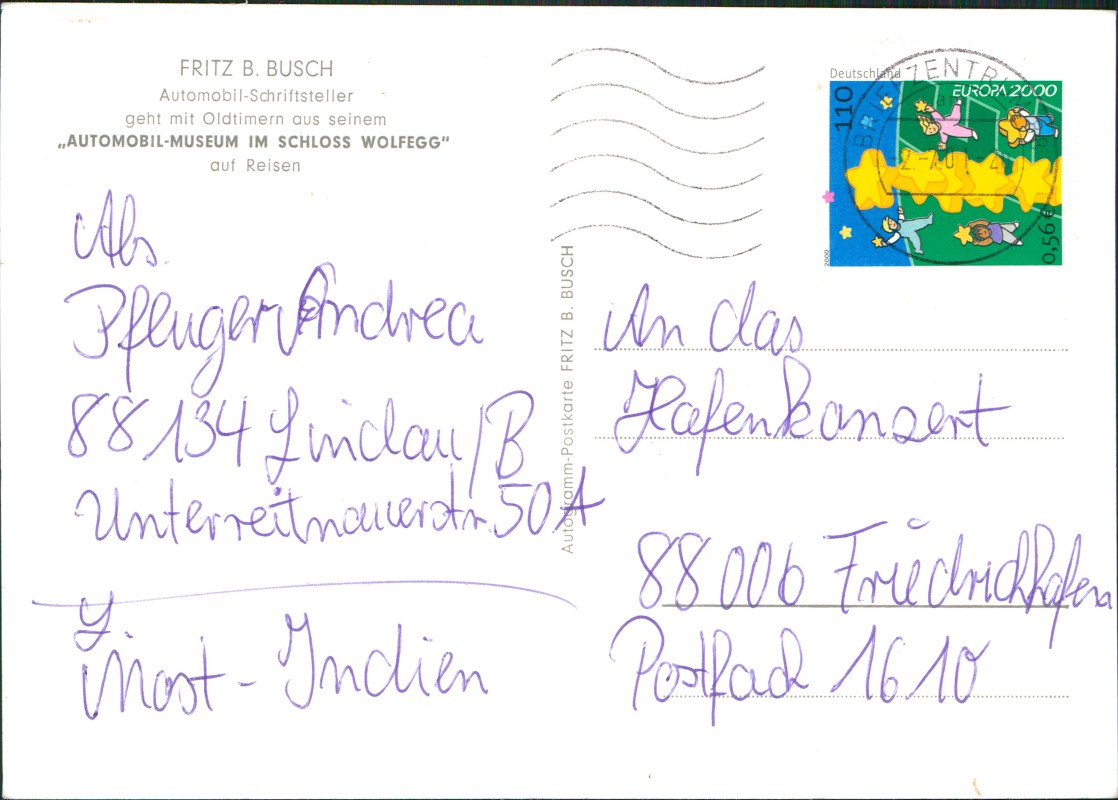 FRITZ B. BUSCH
Automobil-Schriftsteller
geht mit Oldtimern aus seinem
„AUTOMOBIL-MUSEUM IM SCHLOSS WOLFEGG"
auf Reisen
Abs.
Pfluger Andrea
88134 Lindau/B
Unterreitnauerstr. 50A
Most-Indien
Autogramm-Postkarte FRITZ B. BUSCH
Deutschland
EUROPA 2000
110
0,56€
2000
BRIEFZENTRUM
An das
Hafenkonzert
88006 Friedrichhafen
Postfach 1610